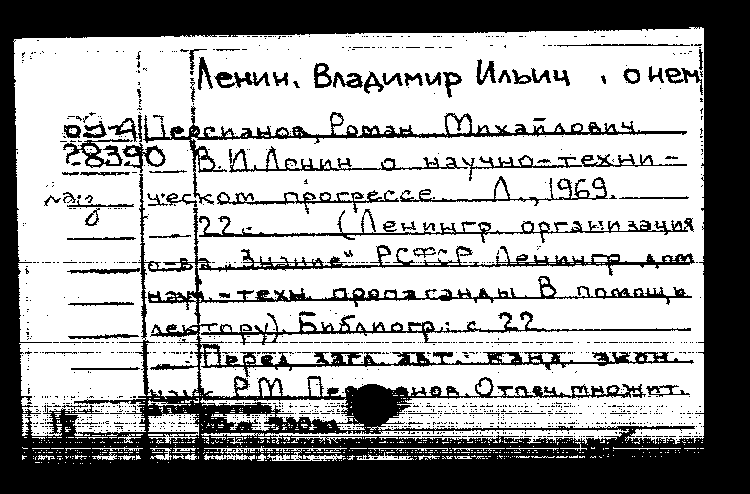 Ленин, Владимир Ильич, о нем
69-4 Персианов, Роман Михайлович
28390 В.И.Ленин о научно-техни-
ческом прогрессе. Л., 1969.
22 с. (Ленингр. организация
о-ва „Знание“ РСФСР. Ленингр. дом
науч.-техн. пропаганды. В помощь
лектору). Библиогр.: с. 22
Перед загл. авт.: канд. экон.
наук Р.М. Персианов. Отпеч. множит.
аппаратом.